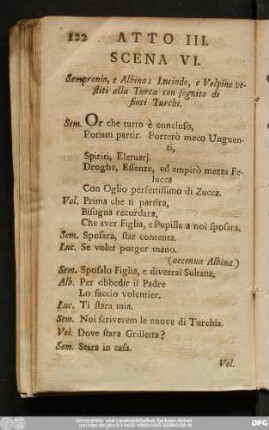 122 ATTO III.
SCENA VI.
Sempronio, e Albina: Lucindo, e Volpino ve-
stiti alla Turca con seguito di
finti Turchi.
Sem. Or che tutto è concluso,
Potiam partir. Porterò meco Unguen-
ti,
Spiriti, Eletuarj.
Droghe, Essenze, ed empirò mezza Fe-
lucca
Con Oglio perfettissimo di Zucca.
Vol. Prima che ti partira,
Bisogna recordara,
Che aver Figlia, e Pupilla a noi sposara.
Sem. Sposara, star contenta.
Luc. Se voler porger mano.
(accenna Albina.)
Sem. Sposalo Figlia, e diverrai Sultana,
Alb. Per obbedir il Padre
Lo faccio volentier.
Luc. Ti stara mia.
Sem. Noi scriverem le nuove di Turchia.
Vol. Dove stara Grilletta?
Sem. Stara in casa.
Vol.
DFG